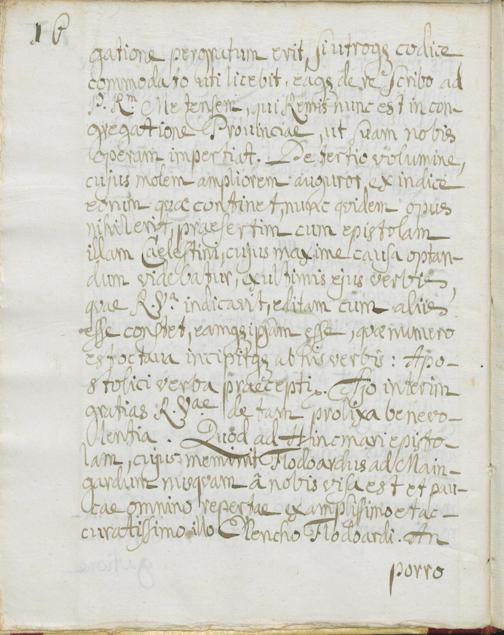 16
gatione pergratum erit, si utroqz codice
commodato uti licebit, eaqz de re scribo ad
P. Rm. Metensem, qui Remis nunc est in con-
gregatione Provinciae, ut suam nobis
operam impertiat. De tertio volumine,
cujus molem ampliorem auguror, ex indice
eorum quae continet nunc quidem opus
nihil erit, praesertim cum epistolam
illam Caelestini, cujus maxime causa optan-
dum videbatur, ex ultimis ejus verbis,
quae R. Va. indicavit, editam cum aliis
esse constet, eamqz ipsam esse, quae numero
est octava incipitqz ab his verbis: Apo-
stolici verba praecepti. Ago interim
gratias R. Vae. de tam prolixa benevo-
lentia. Quod ad Hincmari episto-
lam, cujus meminit Flodoardus ad Main-
gardum nusquam à nobis visa est et pau-
cae omnino repertae ex amplissimo et ac-
curatissimo illo Elencho Flodoardi. An
porro